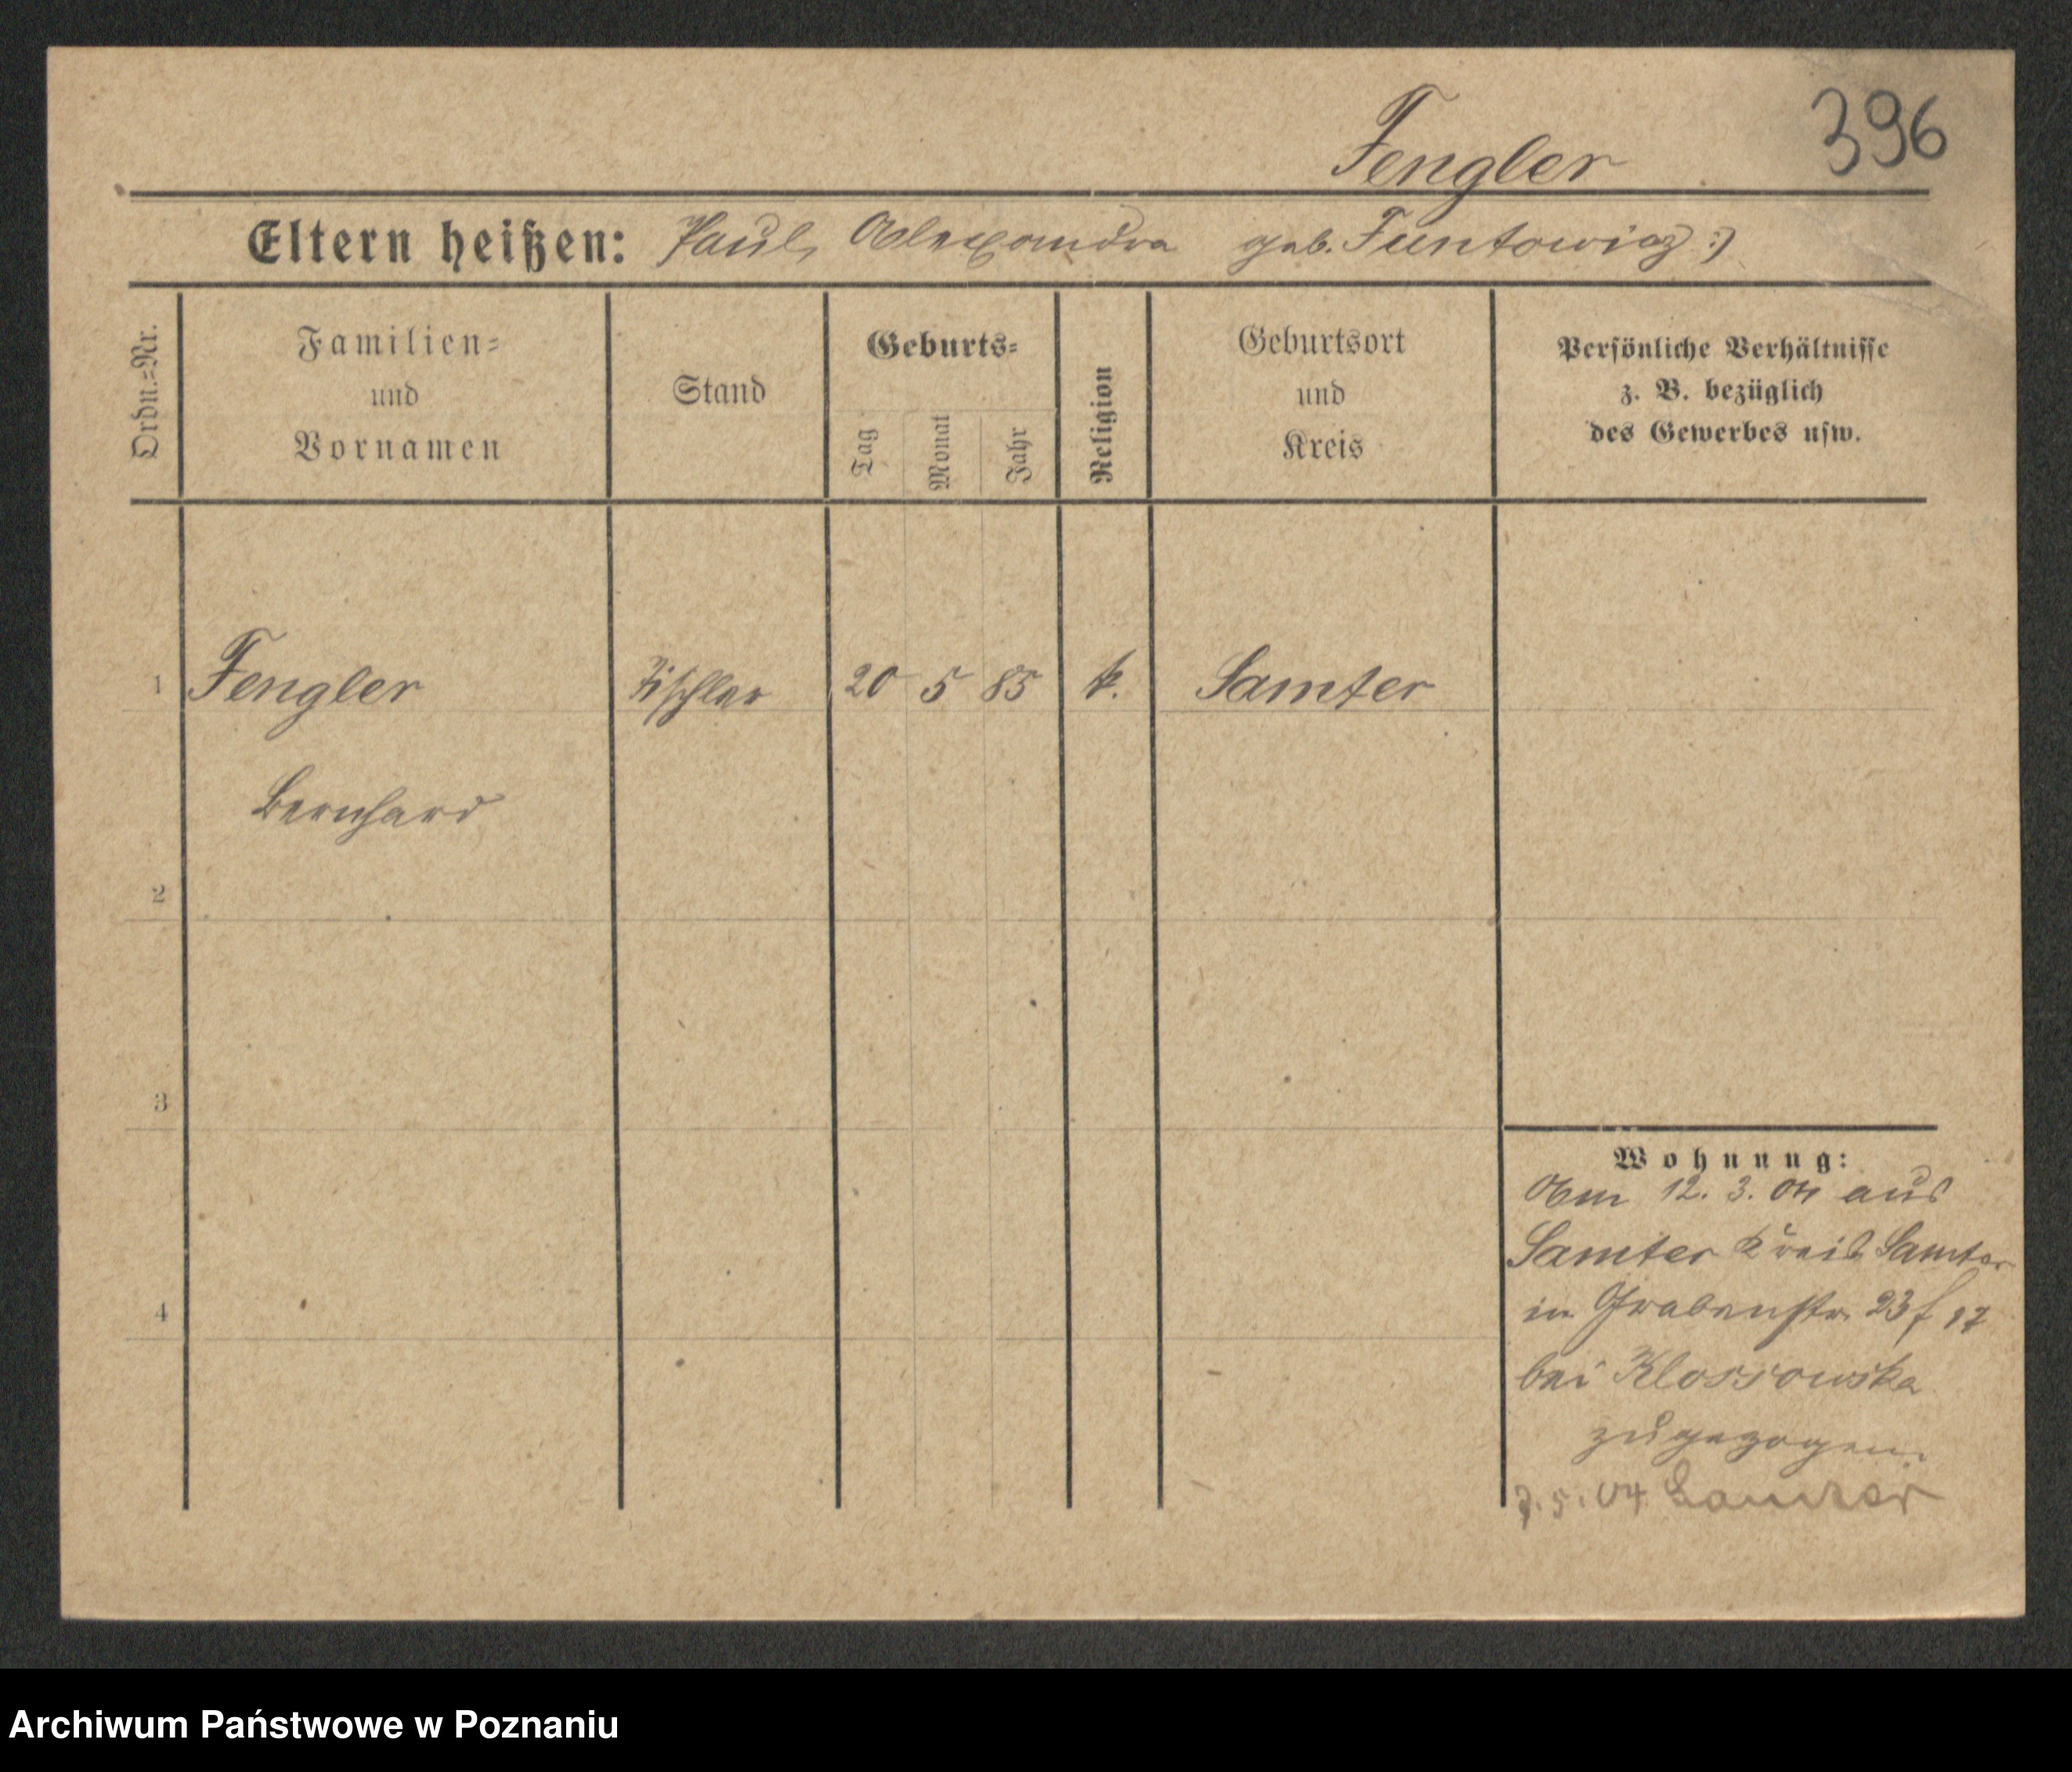 396
Fengler
Eltern heißen: Paul, Alexandra geb. Funtowicz :)
Ordn.=Nr.
Familien=
und
Vornamen
Stand
Geburts=
Tag
Monat
Jahr
Religion
Geburtsort
und
Kreis
Persönliche Verhältnisse
z. B. bezüglich
des Gewerbes usw.
1 Fengler Tischler 20 5 85 k. Samter
Bernhard
2
3
4
Wohnung:
Am 12. 3. 04 aus
Samter Kreis Samter
in Grabenstr. 23
bei Klossowska
zugezogen.
7.5.04 Samter
Archiwum Państwowe w Poznaniu